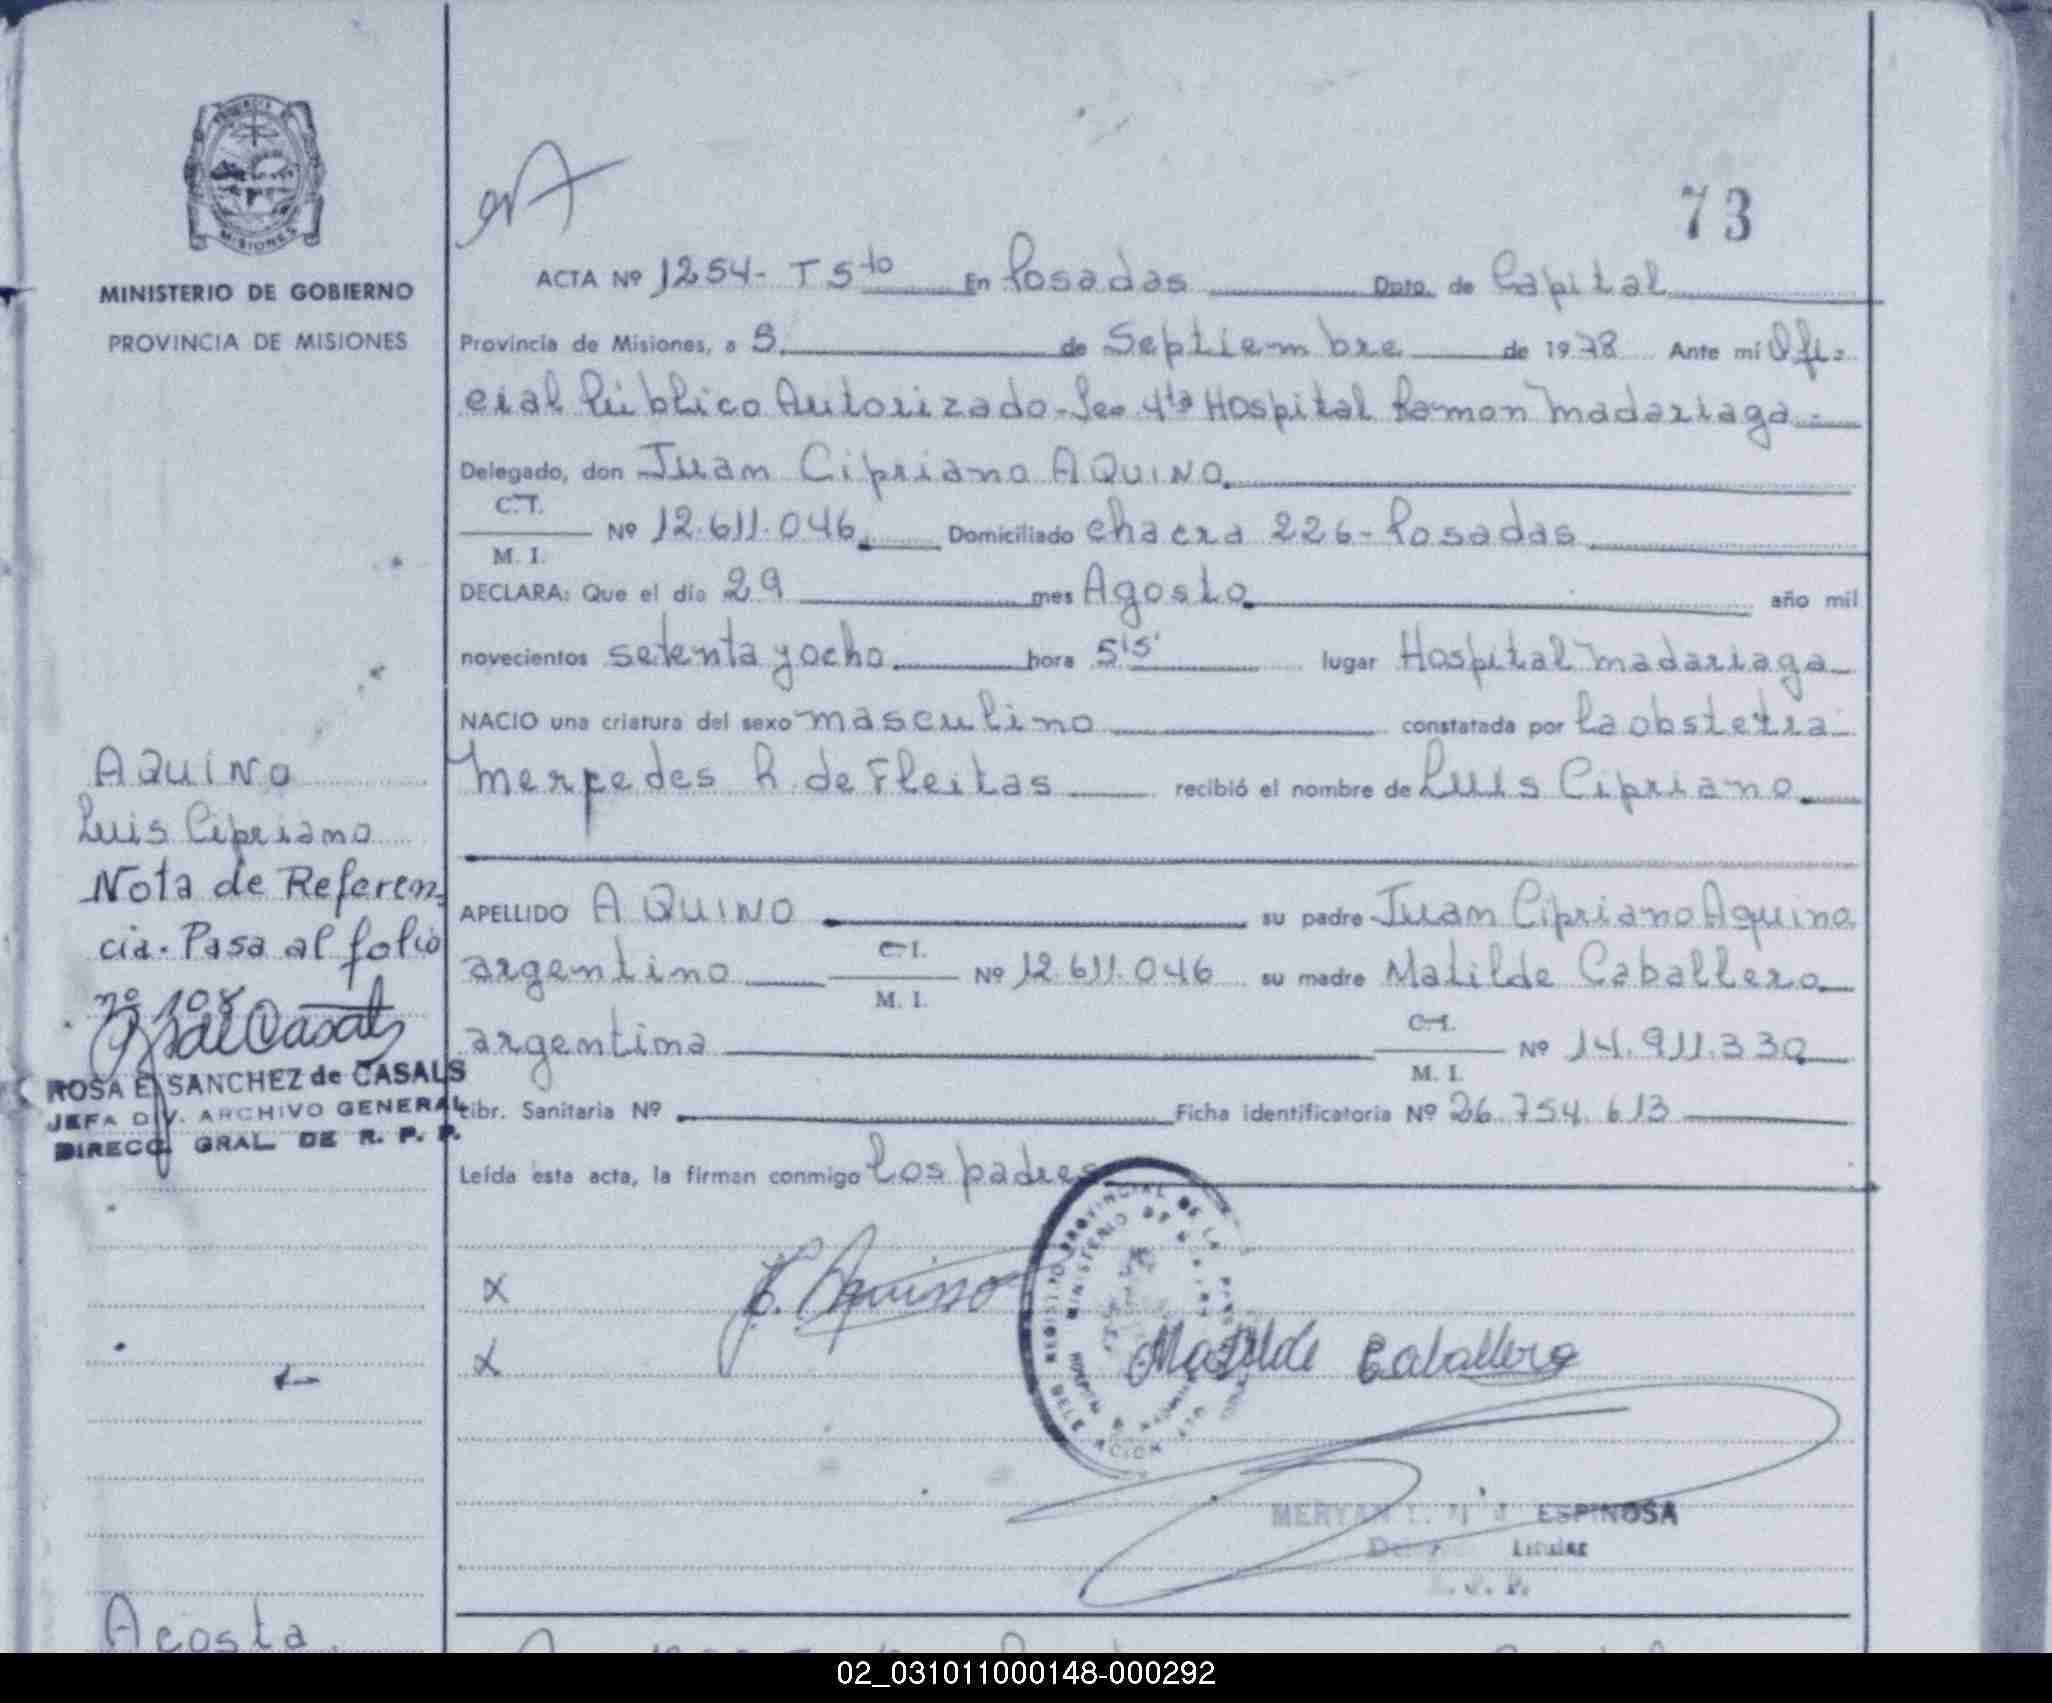 73
MINISTERIO DE GOBIERNO
PROVINCIA DE MISIONES
ACTA Nº 1254- T 5to En Posadas Dpto. de Capital
Provincia de Misiones, a 5 de Septiembre de 1978 Ante mí Ofi-
cial Público Autorizado-Sec 4ta Hospital Ramon Madariaga.-
Delegado, don Juan Cipriano AQUINO
C.I.
M. I.
Nº 12.611.046 Domiciliado chacra 226- Posadas
DECLARA: Que el día 29 mes Agosto año mil
novecientos setenta y ocho hora 5'5' lugar Hospital Madariaga
NACIO una criatura del sexo masculino constatada por la obstetra
Mercedes R de Fleitas recibió el nombre de Luis Cipriano
APELLIDO AQUINO su padre Juan Cipriano Aquino
argentino C.I. M. I. Nº 12.611.046 su madre Matilde Caballero
argentina C.I. M. I. Nº 14.911.330
Libr. Sanitaria Nº Ficha identificatoria Nº 26.754.613
Leída esta acta, la firman conmigo los padres
AQUINO
Luis Cipriano
Nota de Referen-
cia. Pasa al folio
nº 108
ROSA E. SANCHEZ de CASALS
JEFA DIV. ARCHIVO GENERAL
DIRECC. GRAL. DE R. P. P.
X J. Aquino
X Matilde Caballero
REGISTRO PROVINCIAL DE LA
MINISTERIO DE
DELEGACION
ESPINOSA
Titular
Acosta
02_031011000148-000292